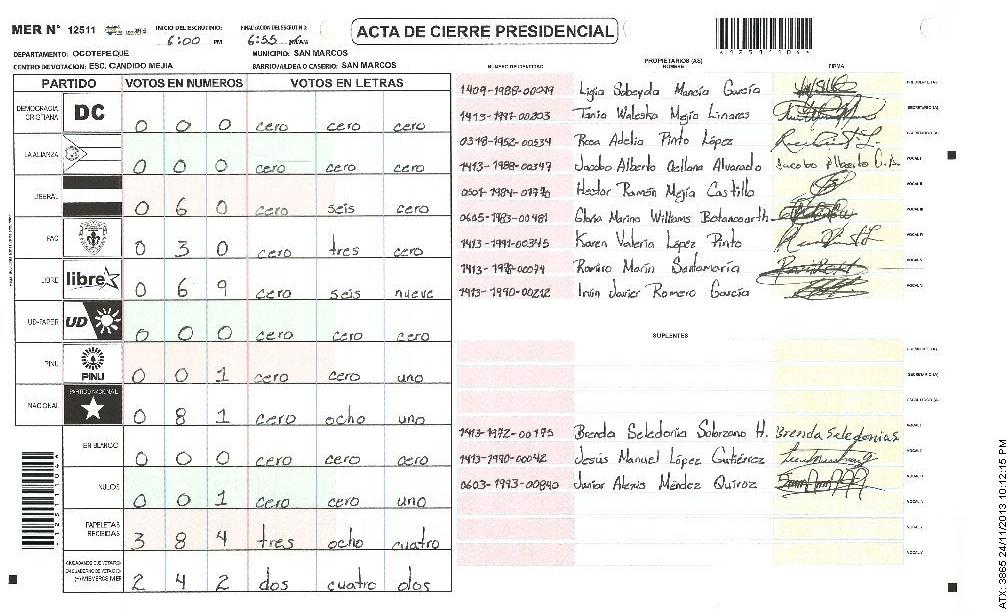 MER N° 12511
INICIO DEL ESCRUTINIO: 6:00 PM
FINALIZACION DEL ESCRUTINIO: 6:55
ACTA DE CIERRE PRESIDENCIAL
12511044
DEPARTAMENTO: OCOTEPEQUE
MUNICIPIO: SAN MARCOS
CENTRO DE VOTACION: ESC. CANDIDO MEJIA
BARRIO/ALDEA O CASERIO: SAN MARCOS
PARTIDO VOTOS EN NUMEROS VOTOS EN LETRAS
DEMOCRACIA CRISTIANA DC 0 0 0 cero cero cero
LA ALIANZA 0 0 0 cero cero cero
LIBERAL 0 6 0 cero seis cero
PAC 0 3 0 cero tres cero
LIBRE libre 0 6 9 cero seis nueve
UD-FAPER UD 0 0 0 cero cero cero
PINU PINU 0 0 1 cero cero uno
NACIONAL PARTIDO NACIONAL 0 8 1 cero ocho uno
EN BLANCO 0 0 0 cero cero cero
NULOS 0 0 1 cero cero uno
PAPELETAS RECIBIDAS 3 8 4 tres ocho cuatro
CIUDADANOS QUE VOTARON EN CUADERNO DE VOTACION (+) MIEMBROS MER 2 4 2 dos cuatro dos
PROPIETARIOS (AS)
NUMERO DE IDENTIDAD NOMBRE FIRMA
1409-1988-00079 Ligia Sobeyda Mancía García PRESIDENTE (A)
1413-1991-00303 Tania Waleska Mejía Linares SECRETARIO (A)
0318-1952-00534 Rosa Adelia Pinto López
1413-1988-00347 Jacobo Alberto Orellana Alvarado Jacobo Alberto O.A. VOCAL I
0501-1984-01770 Hector Ramón Mejía Castillo VOCAL II
0605-1983-00481 Gloria Marina Williams Betancourth VOCAL III
1413-1991-00345 Karen Valeria López Pinto VOCAL IV
1413-1978-00074 Ramiro Marín Santamaría VOCAL V
1413-1990-00212 Irvin Javier Romero García VOCAL VI
SUPLENTES
PRESIDENTE (A)
SECRETARIO (A)
ESCRUTADOR (A)
1413-1972-00175 Brenda Seledonia Solorzano H. Brenda Seledonias VOCAL I
1413-1990-00042 Jesús Manuel López Gutiérrez VOCAL II
0603-1993-00840 Junior Alexis Méndez Quiroz VOCAL III
VOCAL IV
VOCAL V
VOCAL VI
ATX: 3865 24/11/2013 10:12:15 PM